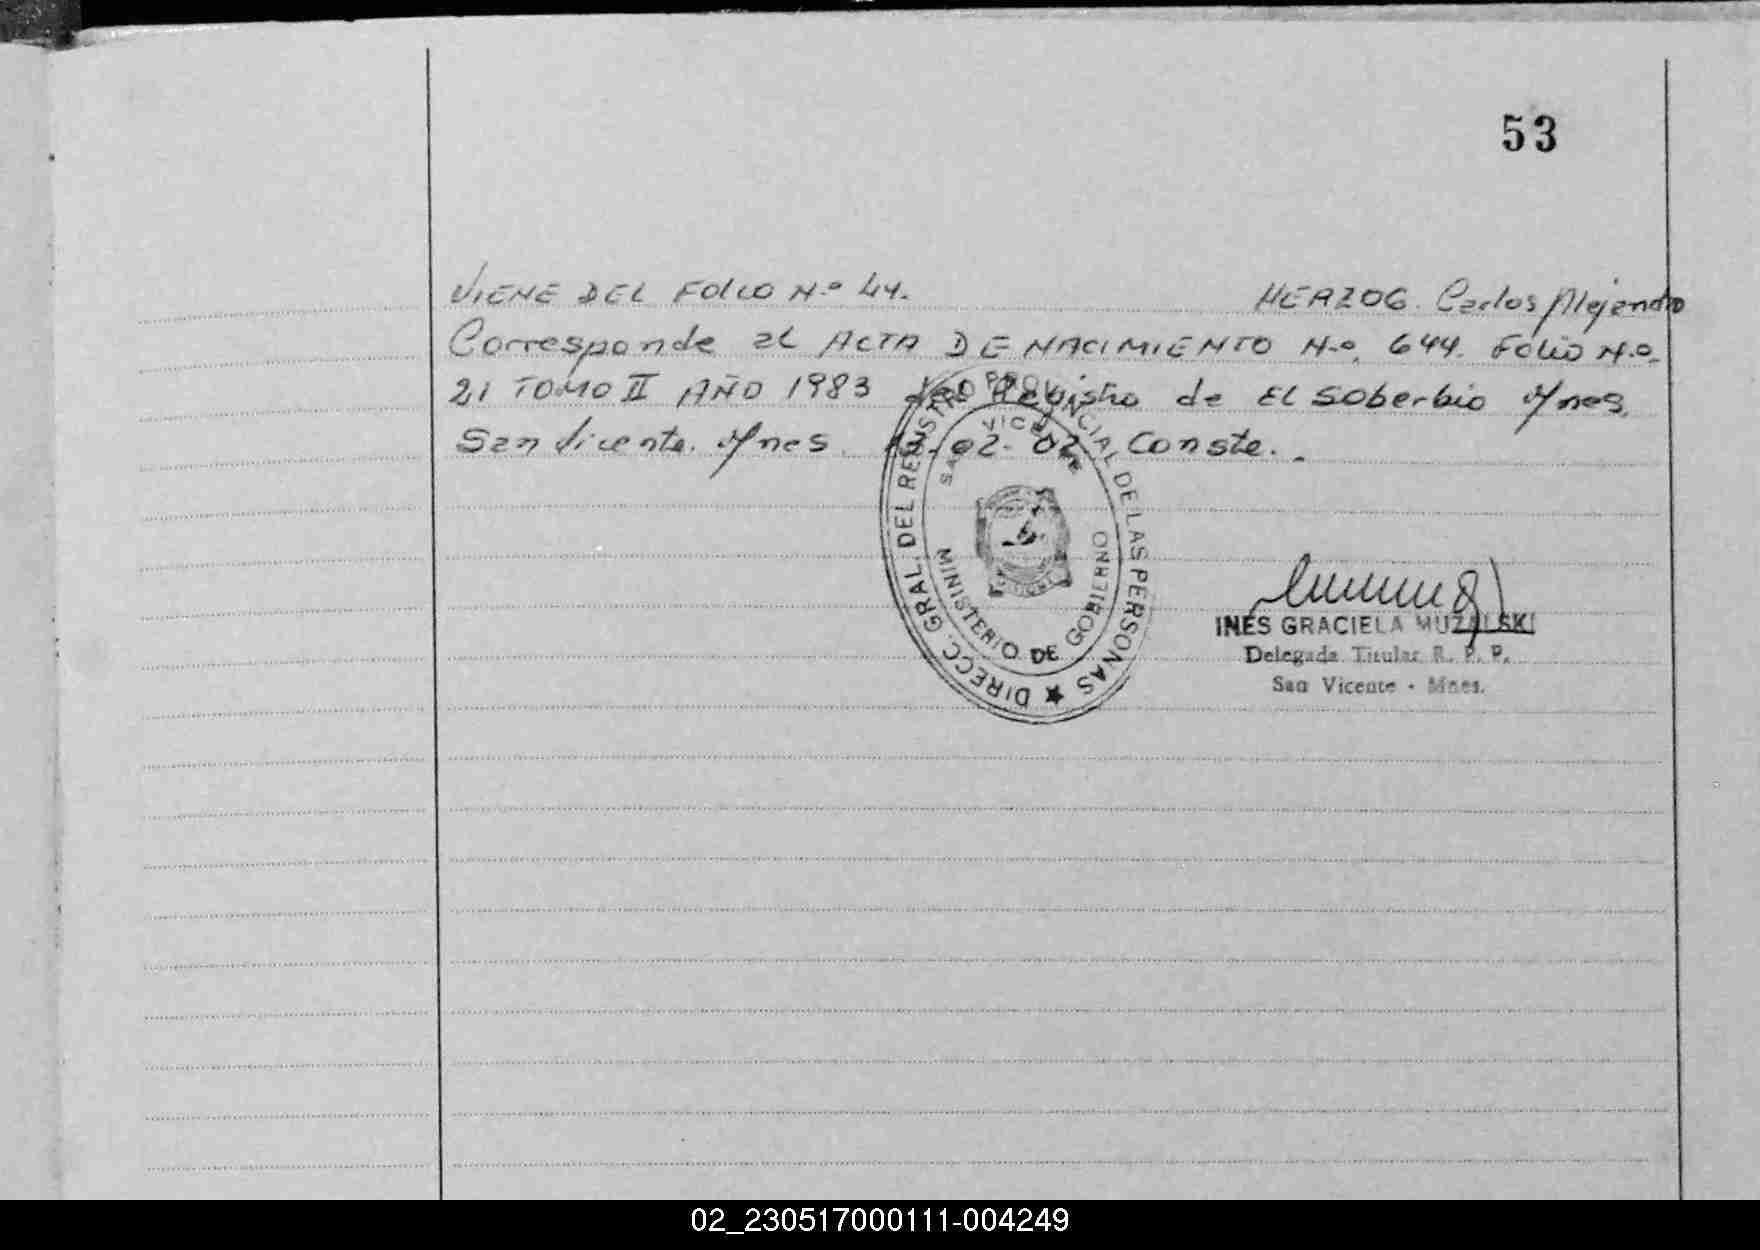 53
VIENE DEL FOLIO N.º 44. HERZOG. Carlos Alejandro
Corresponde al ACTA DE NACIMIENTO N.º 644. Folio N.º
21 TOMO II AÑO 1983 del Registro de El Soberbio Mnes.
San Vicente. Mnes. 13-02-02. Conste..
DIRECC. GRAL. DEL REGISTRO PROVINCIAL DE LAS PERSONAS ★
SAN VICENTE
MINISTERIO DE GOBIERNO
INES GRACIELA MUZALSKI
Delegada Titular R. P. P.
San Vicente - Mnes.
02_230517000111-004249